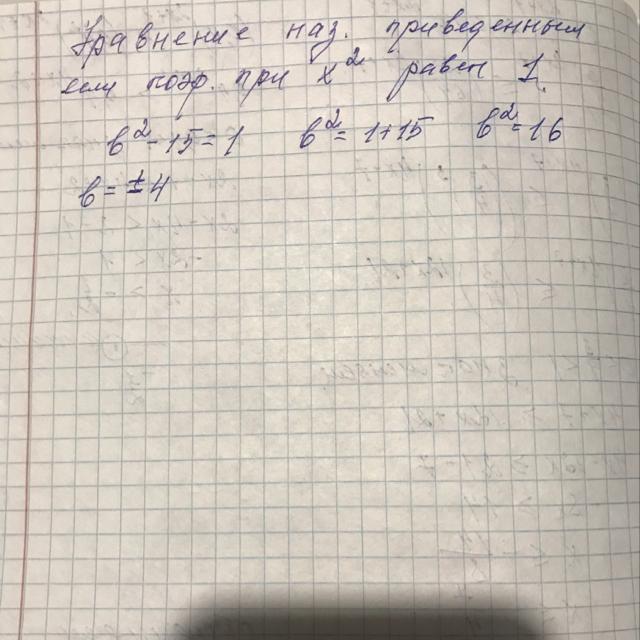 Уравнение наз. приведенным
если коэф. при x² равен 1.
b² - 15 = 1 b² = 1+15 b² = 16
b = ± 4